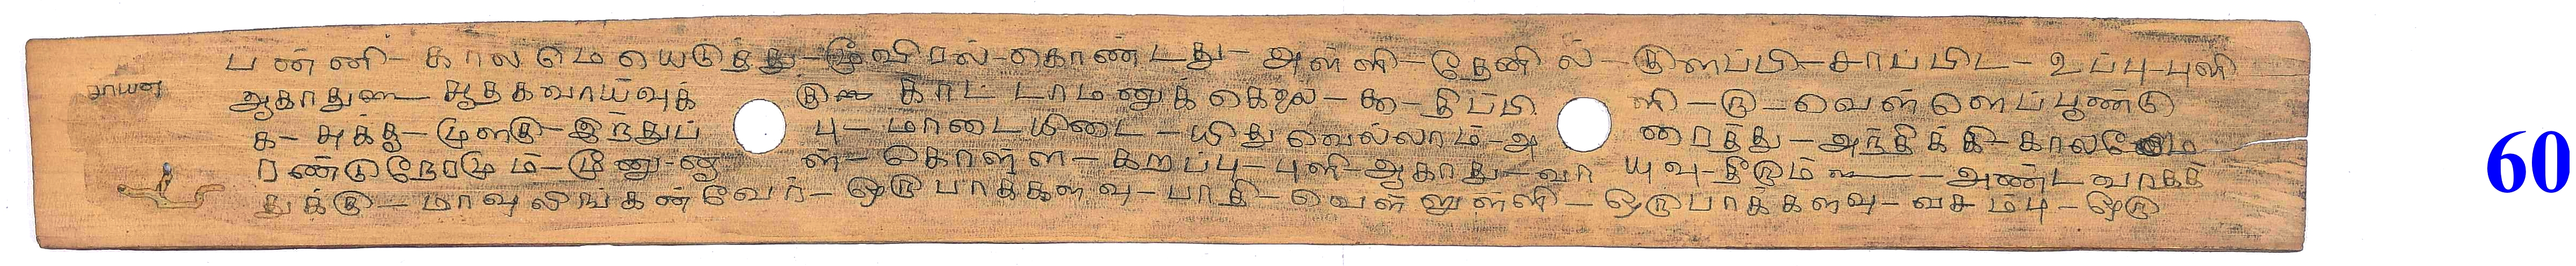 பண்ணி - காலமெயெடுத்து - மூவிரல் - கொண்டது - அள்ளி - தேனில் - குளப்பி - சாப்பிட - உப்பு - புளி
ஆகாது சூதகவாய்வுக்கு காட்டாமணுக்கெலை - திப்பிலி - ரு - வெள்ளைப்பூண்டு
க - சுக்கு - மூளகு - இந்துப்பு - மாடையிடை - யிதுவெல்லாம் - அரைத்து - அந்திக்கி - காலமெ
ரண்டுநேரமும் - மூனு - னாள் - கொள்ள - கறப்பு - புளி - ஆகாது - வாயுவு - தீரும் - அண்டவாதத்
துக்கு - மாவுலிங்கன்வேர் - ஒருபாக்களவு - பாதி - வெள்ளுள்ளி - ஒருபாக்களவு - வசம்பு - ஒரு
60